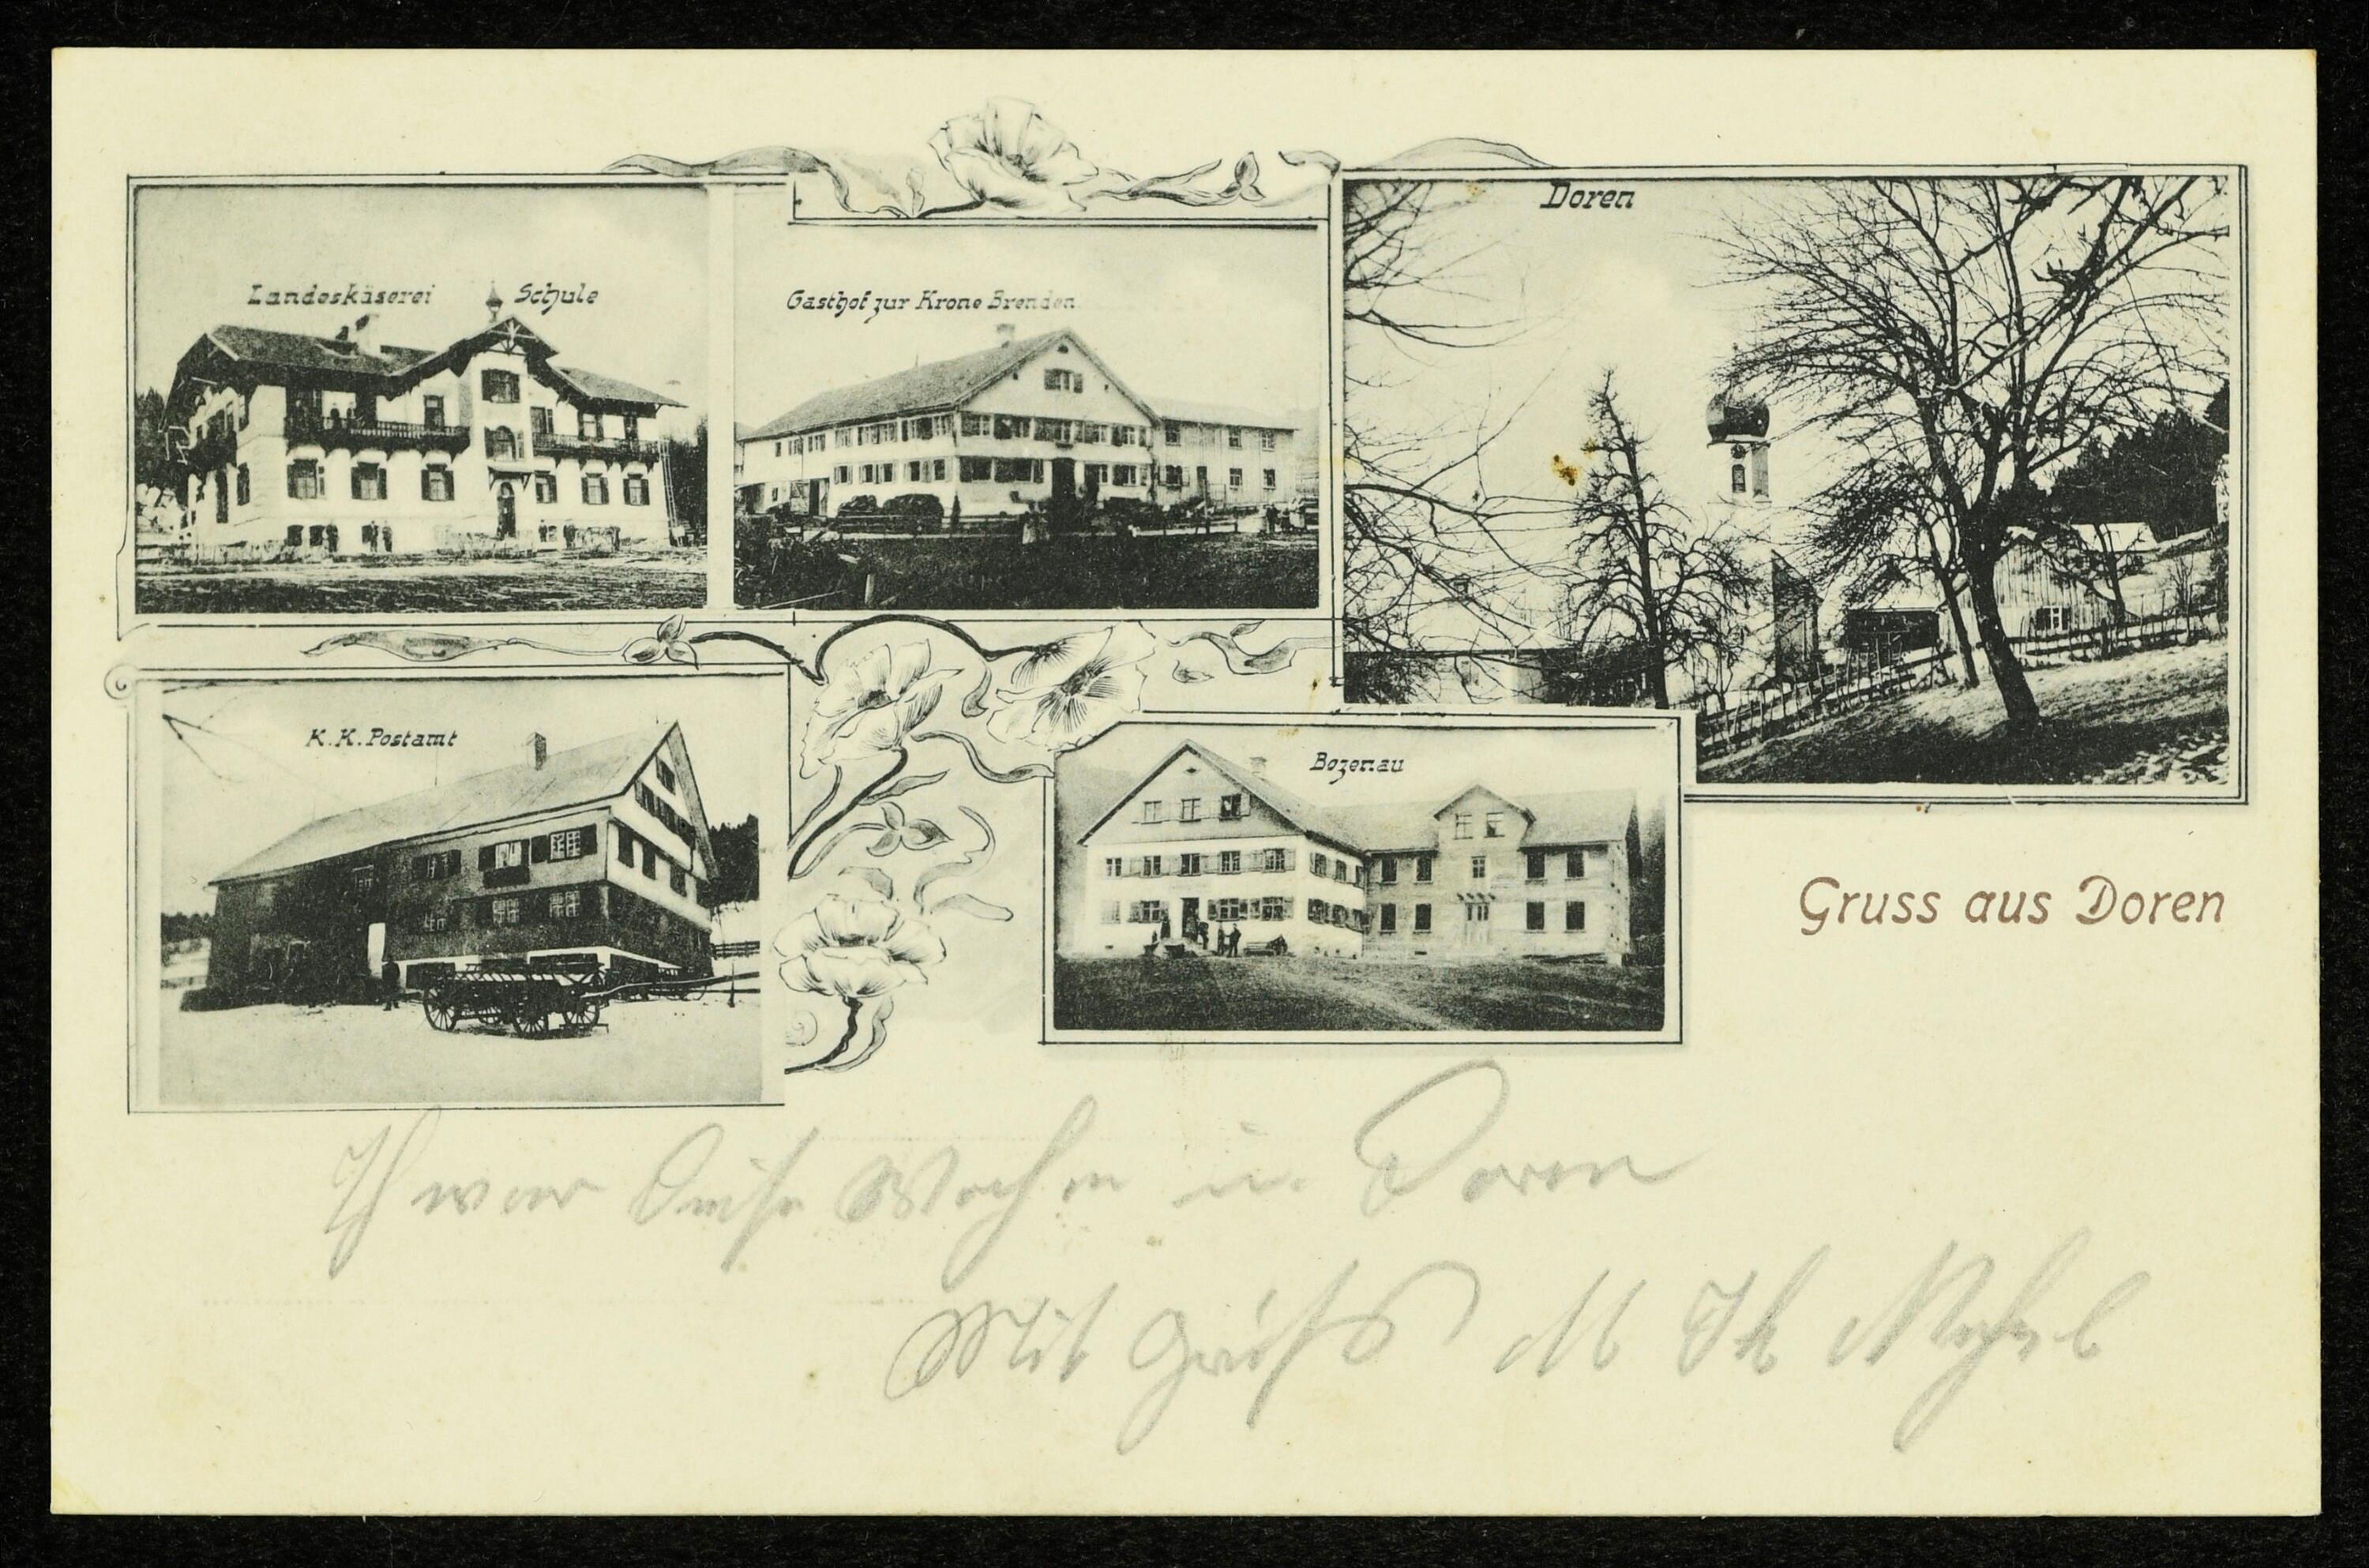 Landeskäserei Schule
Gasthof zur Krone Brenden
Doren
K. K. Postamt
Bozenau
Gruss aus Doren
Ich war diese Wochen in Doren
Mit Gruß